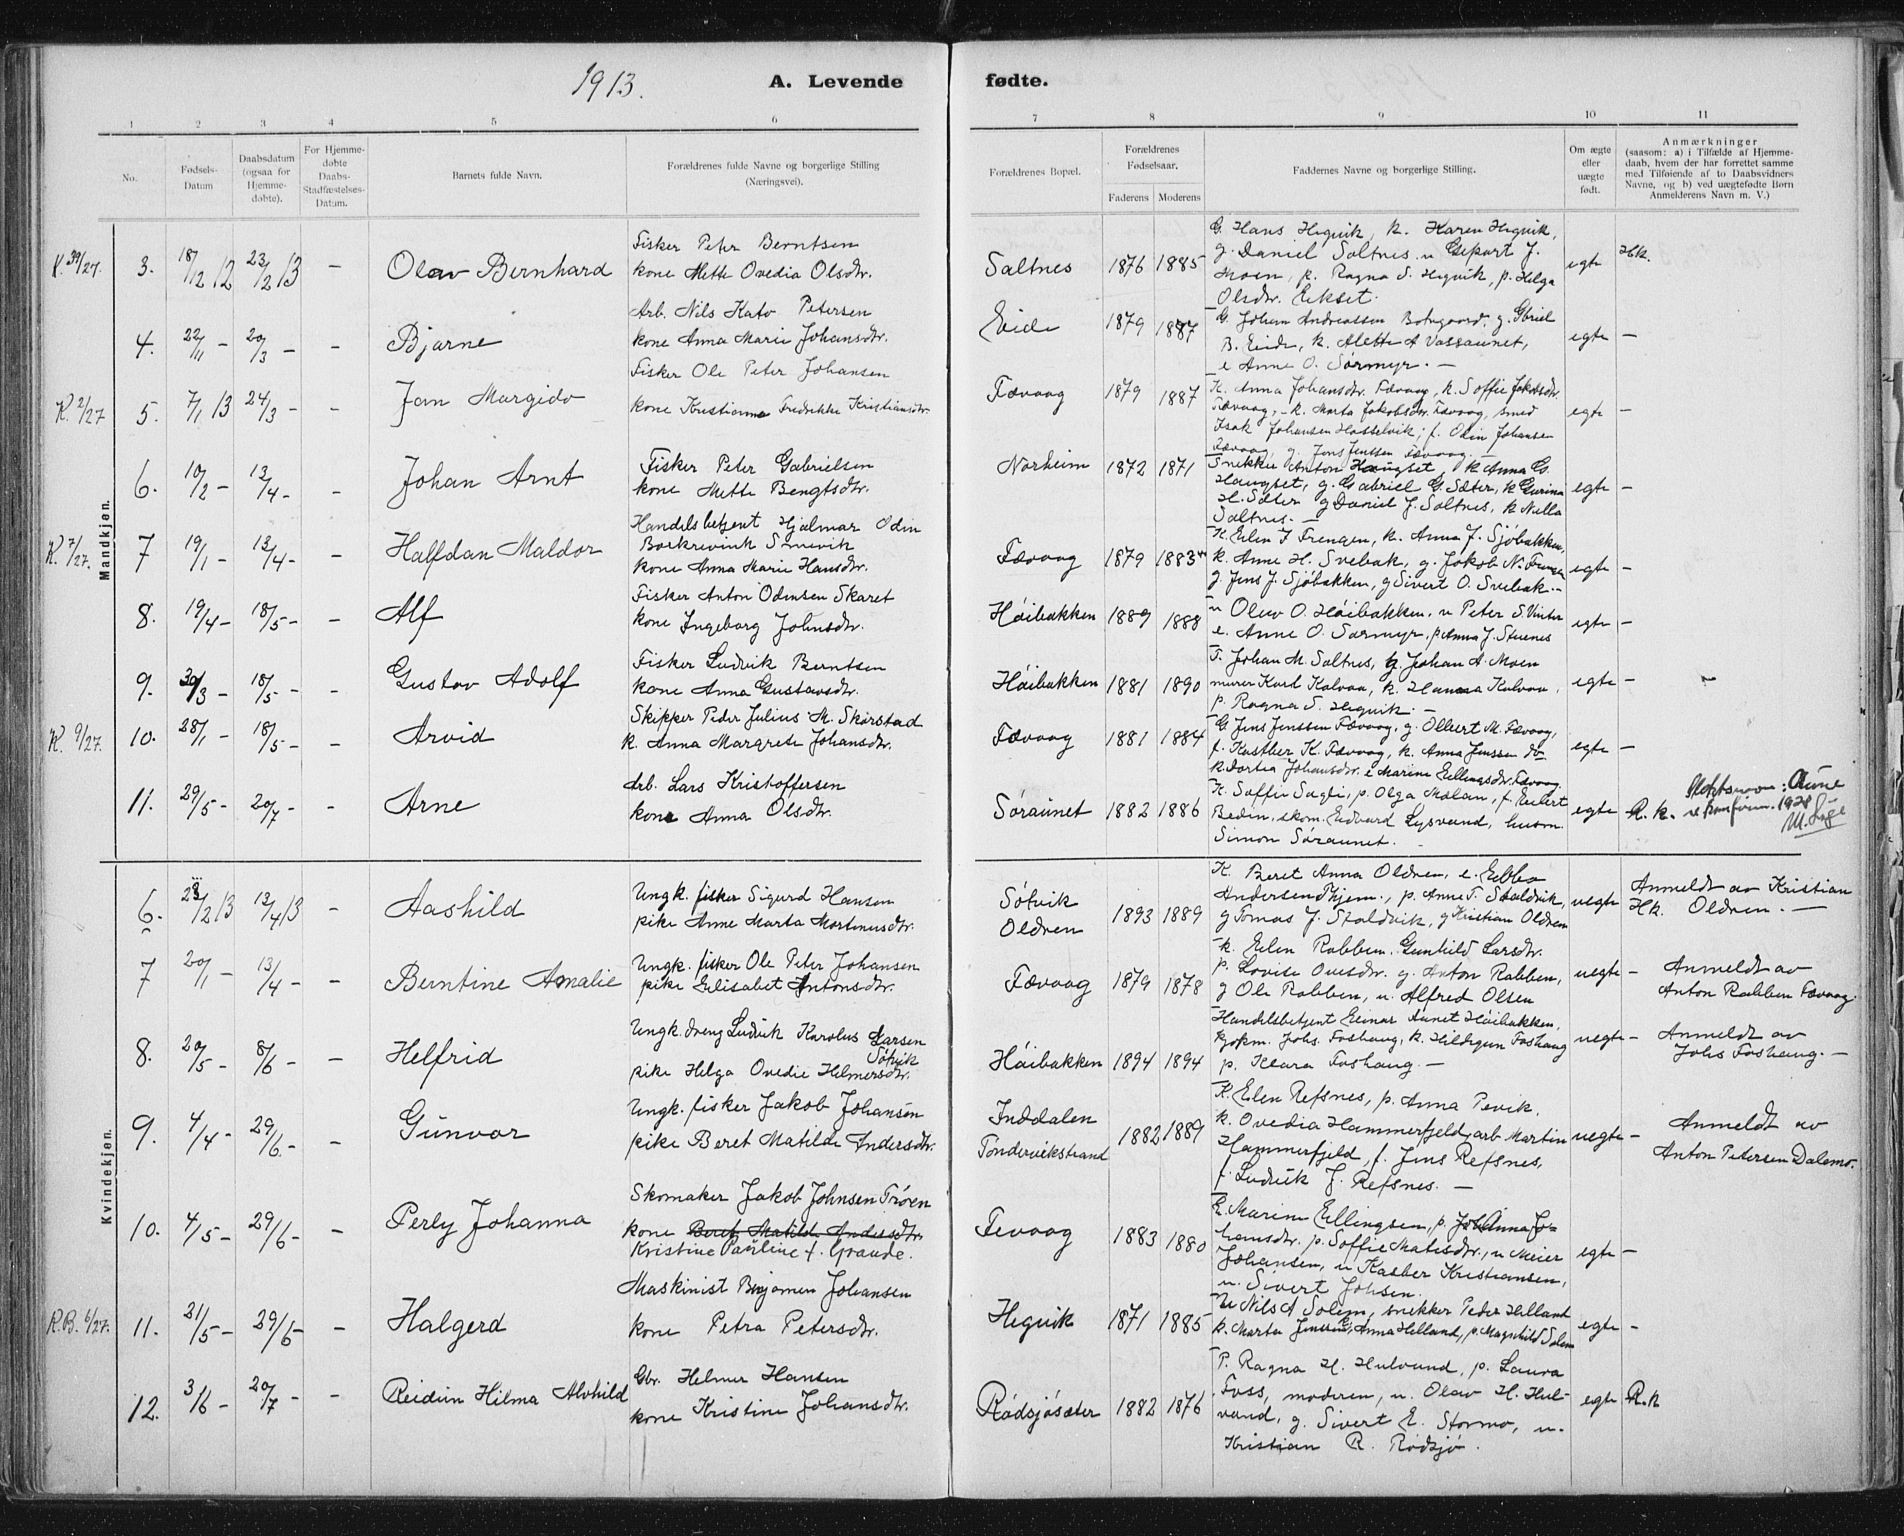 1913.
A. Levende fødte.
1 2 3 4 5 6 7 8 9 10 11
No.
Fødsels-
Datum
Daabsdatum
(ogsaa for
Hjemme-
døbte).
For Hjemme-
døbte
Daabs-
Stadfæstelses-
Datum.
Barnets fulde Navn.
Forældrenes fulde Navne og borgerlige Stilling
(Næringsvei).
Forældrenes Bopæl.
Forældrenes
Fødselsaar.
Faderens Moderens
Faddernes Navne og borgerlige Stilling.
Om ægte
eller
uægte
født.
Anmærkninger
(saasom: a) i Tilfælde af Hjemme-
daab, hvem der har forrettet samme
med Tilføiende af to Daabsvidners
Navne, og b) ved uægtefødte Børn
Anmelderens Navn m. V.)
Mandkjøn.
K. 39/27. 3. 18/12 12 23/2 13 - Olav Bernhard
Fisker Peter Berntsen
kone Mette Ovedia Olsdtr.
Saltnes 1876 1885
G. Hans Hegvik, k. Karen Hegvik,
g. Daniel Saltnes, u Gepart J.
Moen, p. Ragna S. Hegvik, p. Helga
Olsdtr. Eekset.
egte Hk.
4. 22/11 - 20/3 - - Bjarne
Arb. Nils Kato Petersen
kone Anna Marie Johansdtr.
Eide 1879 1887
G. Johan Andreassen Botngaard, g. Gbriel
B. Eide, k. Alette A Vassaunet,
e Anne O. Sørmyr. -
egte -
K. 2/27 5. 7/1 13 24/3 - - Jan Margido
Fisker Ole Peter Johansen
kone Kristianne Fredrikke Kristiansdtr.
Fævaag 1879 1887
K. Anna Johansdtr. Fævaag, k. Soffie Jakobsdtr.
Fævaag, - k. Marta Jakobsdtr. Fævaag, smed
Isak Johansen Hasselvik, f. Odin Johansen
Fævaag, g. Jens Jenssen Fævaag. -
egte -
6. 10/2 - 13/4 - - Johan Arnt
Fisker Peter Gabrielsen
kone Mette Bengtsdtr.
Norheim 1872 1871
Snekker Anton Haugset, k Anna G.
Haugset, g. Gabriel G. Sæter, k Gurina
H. Sæter g Daniel J. Saltnes, k Nella
Saltnes. -
egte -
K. 7/27. 7 19/1 - 13/4 - - Halfdan Maldor
Handelsbetjent Hjalmar Odin
Borkrevink Smevik
kone Anna Marie Hansdtr.
Fævaag 1879 1883
K Elen J Frengen, k. Anna J. Sjøbakken,
k. Anne H. Svebak, g. Jakob N. Frengen
g. Jens J. Sjøbakken, g Sivert O. Svebak. -
egte -
8. 19/4 - 18/5 - - Alf
Fisker Anton Odinsen Skaret
kone Ingeborg Johnsdtr.
Høibakken 1889 1888
u Olaw O. Høibakken, u Peter S. Vinter
e. Anne O. Sørmyr, p Anna J. Stuenes
egte -
9. 30/3 - 18/5 - - Gustav Adolf
Fisker Ludvik Berntsen
kone Anna Gustavsdtr.
Høibakken 1881 1890
F. Johan M. Saltnes, g. Johan A. Moen
murer Kurd Kalvaa, k. Hanna Kalvaa,
p. Ragna S. Hegvik. -
egte -
K. 9/27. 10. 28/1 - 18/5 - - Arvid
Skipper Peder Julius M. Skørstad
k. Anna Margrete Johansdtr.
Fævaag 1881 1884
G. Jens Jenssen Fævaag, g. Ollert M. Fævaag,
f. Kasther K. Fævaag, k. Anna Jenssen do
k. Dortea Johansdtr. e Marine Ellingsdtr. Fævaag
egte -
11. 29/5 - 20/7 - - Arne
Arb. Lars Kristoffersen
kone Anna Olsdtr.
Søraunet 1882 1886
K. Soffie Sagfi, p. Olga Mælan, f. Reibert
Bedin, skom. Edvard Lysvand, husm.
Simon Søraunet.
egte R. k. Slektsnavn: Aune
v/ konfirm. 1928
Kvindekjøn.
6. 28/2 13 13/4 13 - Aashild
Ungk. fisker Sigurd Hansen
pike Anne Marta Martinusdtr.
Søtvik
Oldren
1893 1889
K. Beret Anna Oldren, e. Ebba
Andersen Thjem., p. Anne T. Staldvik,
g Tomas J. Staldvik, g Kristian Oldren
uegte Anmeldt av Kristian
Hk. Oldren. -
7 20/1 - 13/4 - - Berntine Amalie
Ungk. fisker Ole Peter Johansen
pike Elisabet Antonsdtr.
Fævaag 1879 1878
k. Elen Rabben, Gunhild Larsdtr.
p. Lovise Ovesdtr. g. Anton Rabben,
g Ole Rabben, u. Alfred Olsen
uegte - Anmeldt av
Anton Rabben Fævaag.
8. 20/5 - 8/6 - - Helfrid
Ungk. dreng Ludvik Karolus Larsen
Søtvik
pike Helga Ovedie Helmersdtr.
Høibakken 1894 1894
Handelsbetjent Einar Aunet Høibakken,
kjøpm. Johs. Foshaug, k. Hildegun Foshaug
p. Klara Foshaug. -
uegte - Anmeldt av
Johs Foshaug. -
9. 4/4 - 29/6 - - Gunvor
Ungk. fisker Jakob Johansen
pike Beret Matilde Andersdtr.
Inddalen
Tøndervikstrand
1882 1889
K. Elen Refsnes, p. Anna Pevik,
k. Ovedia Hammerfjeld, arb Martin
Hammerfjeld, f. Jens Refsnes,
f. Ludvik J. Refsnes. -
uegte - Anmeldt av
Anton Petersen Dalemo.
10. 4/5 - 29/6 - - Perly Johanna
Skomaker Jakob Johnsen Trøen
kone Beret Matilde Andersdtr.
Kristine Pauline f. Graude.
Fevaag 1883 1880
E. Marine Ellingsen, p. Joh Anna Jo-
hansdtr. p. Soffie Matisdtr., u Meier
Johansen, u Kasber Kristiansen,
u. Sivert Johsen.
egte -
R.B. 6/27. 11. 21/5 - 29/6 - - Halgerd
Maskinist Benjamen Johansen
kone Petra Petersdtr.
Hegvik 1871 1885
U Nils A Solem, snekker Peder Helland
k. Marta Jenssen, Anna Helland, p. Magnhild Solem
egte -
12. 3/6 - 20/7 - - Reidun Hilma Alvhild
Gbr. Helmer Hansen
kone Kristine Johansdtr.
Rødsjøsæter 1882 1876
P. Ragna H. Hulvand, p. Laura
Foss, moderen, u. Olav H. Hul-
vand, g. Sivert E. Stormo, u.
Kristian R. Rødsjø.
egte R.k